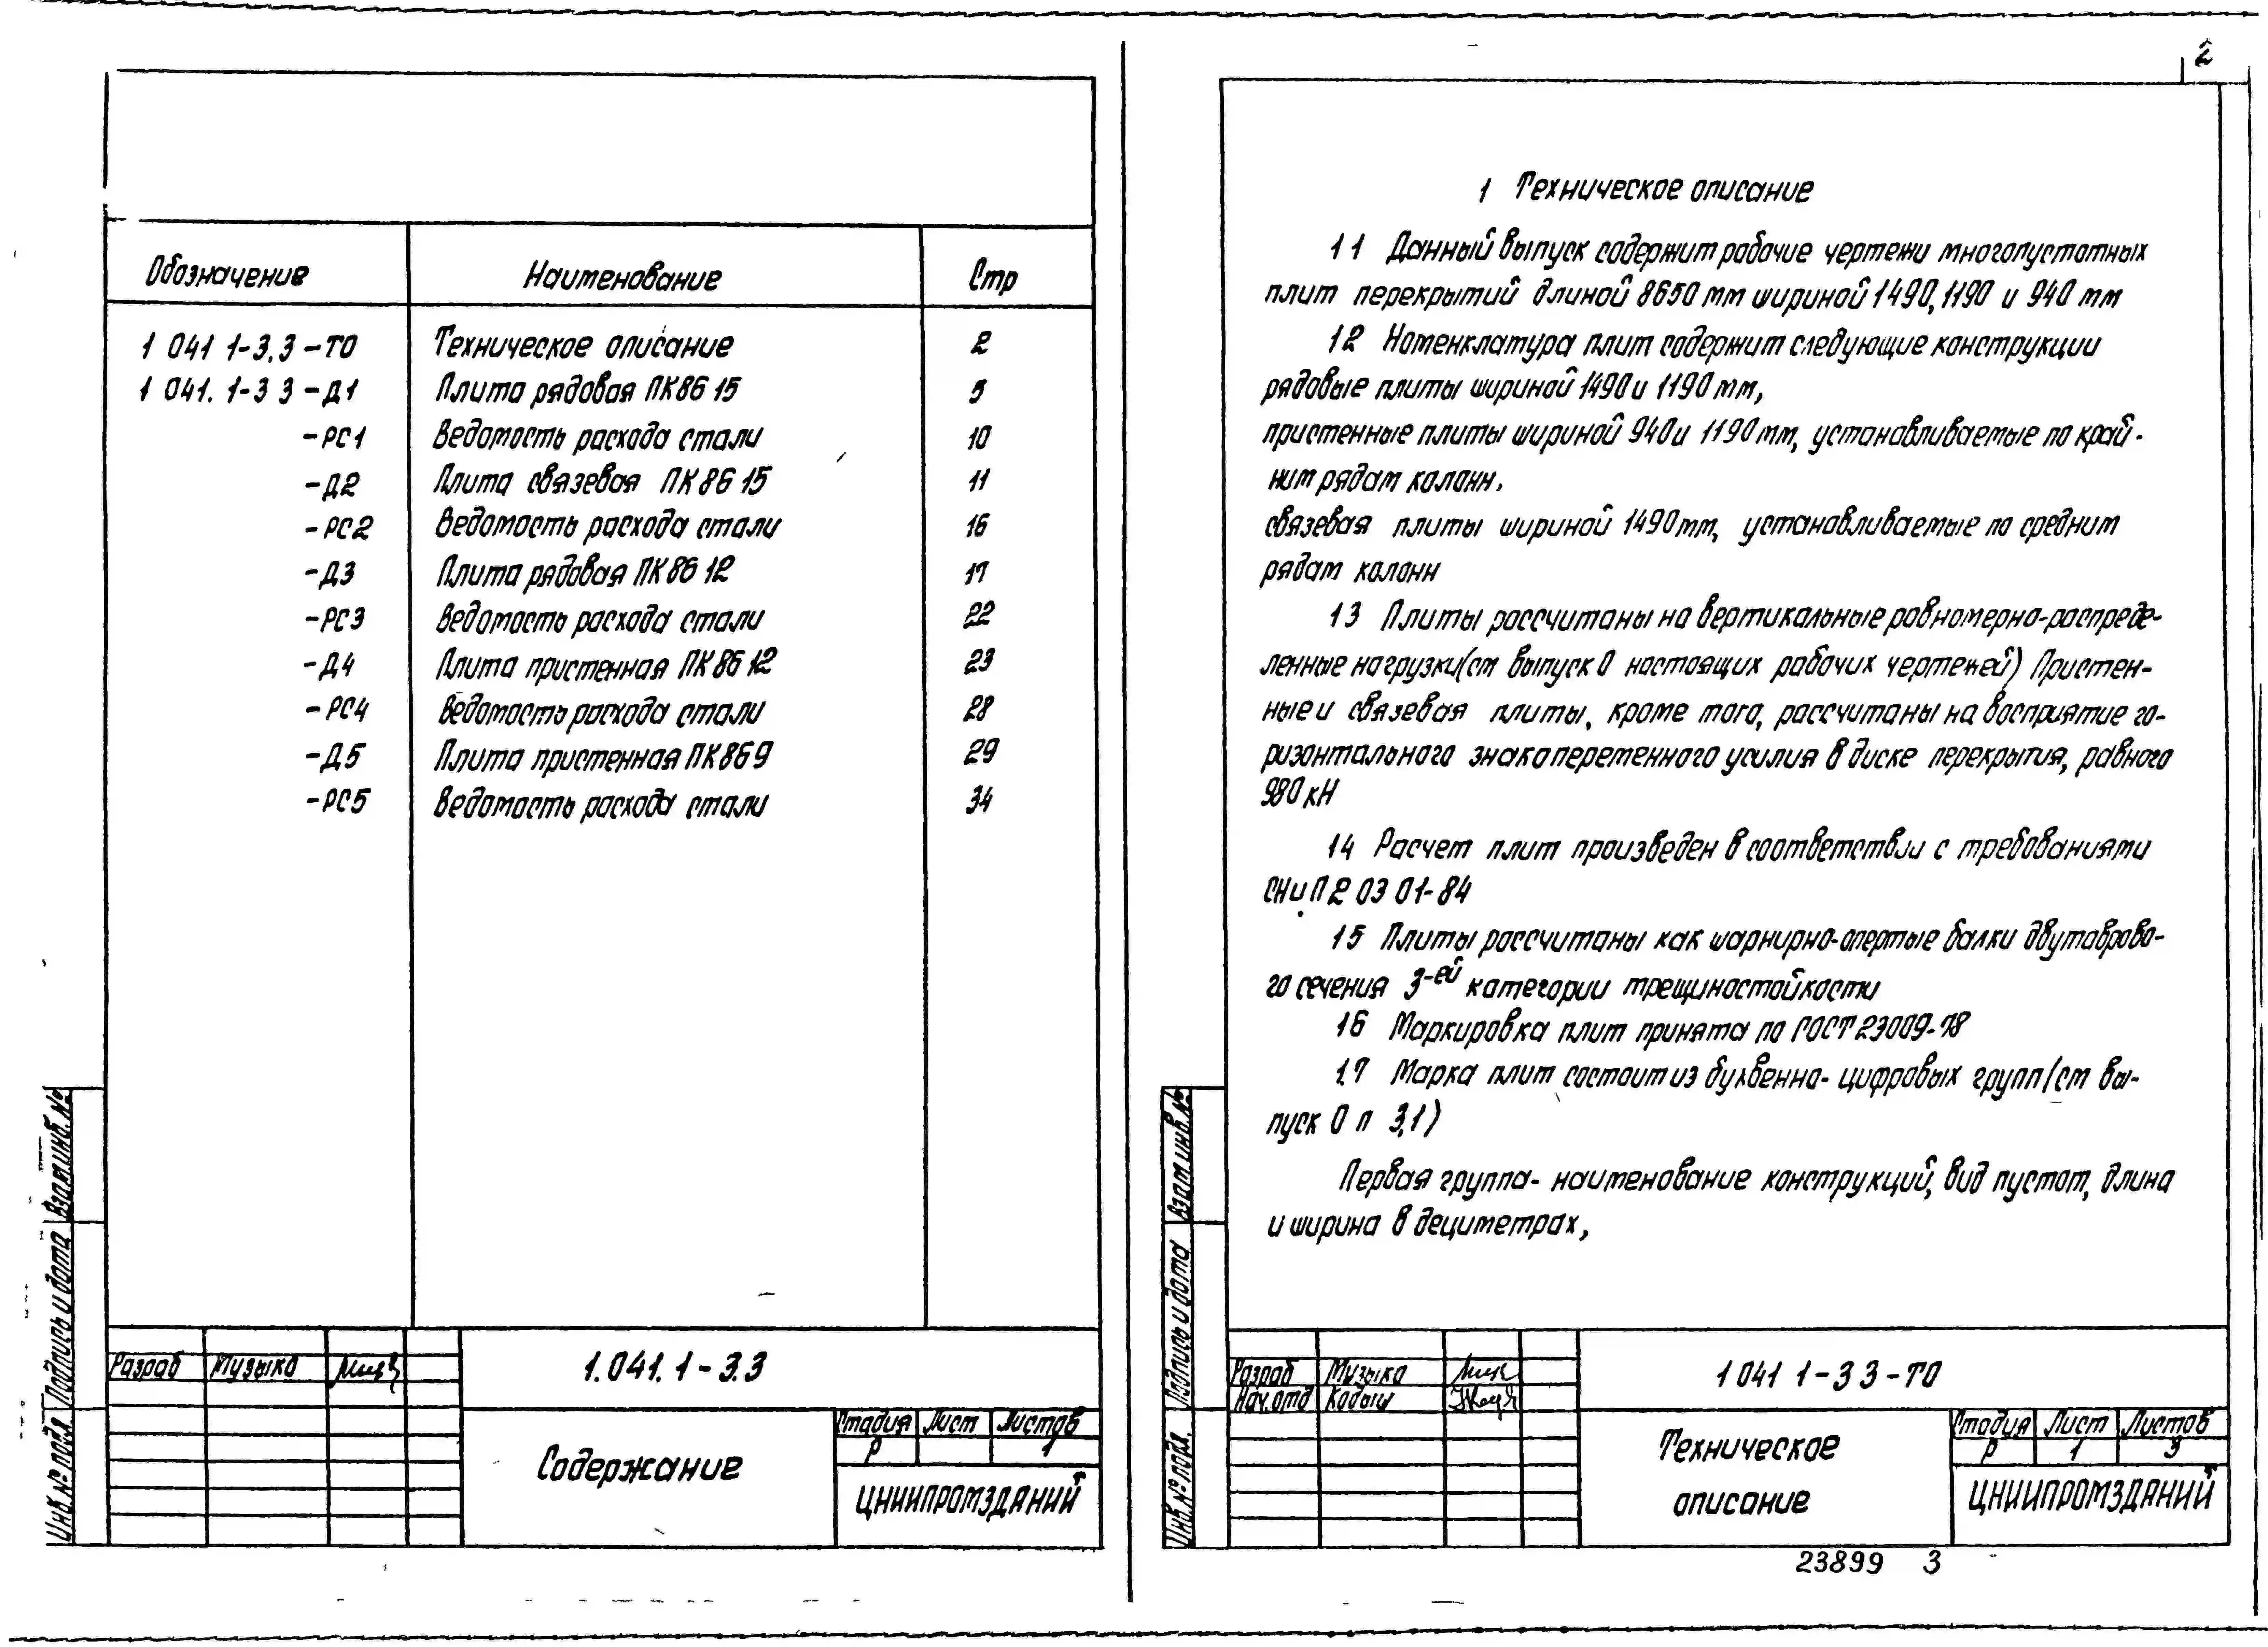 Обозначение Наименование Стр
1 041 1-3.3-ТО Техническое описание 2
1 041. 1-3 3-Д1 Плита рядовая ПК86 15 5
-РС1 Ведомость расхода стали 10
-Д2 Плита связевая ПК 86 15 11
-РС2 Ведомость расхода стали 16
-Д3 Плита рядовая ПК 86 12 17
-РС3 Ведомость расхода стали 22
-Д4 Плита пристенная ПК 86 12 23
-РС4 Ведомость расхода стали 28
-Д5 Плита пристенная ПК 86 9 29
-РС5 Ведомость расхода стали 34
Взам инв. №
Подпись и дата
Инв. № подл
Разраб Музыка
1.041. 1-3.3
Содержание
Стадия Лист Листов
Р 1
ЦНИИПРОМЗДАНИЙ
2
1 Техническое описание
1 1 Данный выпуск содержит рабочие чертежи многопустотных
плит перекрытий длиной 8650 мм шириной 1490, 1190 и 940 мм
1 2 Номенклатура плит содержит следующие конструкции
рядовые плиты шириной 1490 и 1190 мм,
пристенные плиты шириной 940 и 1190 мм, устанавливаемые по край-
ним рядам колонн,
связевая плиты шириной 1490 мм, устанавливаемые по средним
рядам колонн
1 3 Плиты рассчитаны на вертикальные равномерно-распреде-
ленные нагрузки (см выпуск 0 настоящих рабочих чертежей) Пристен-
ные и связевая плиты, кроме того, рассчитаны на восприятие го-
ризонтального знакопеременного усилия в диске перекрытия, равного
980 кН
1 4 Расчет плит произведен в соответствии с требованиями
СНиП 2 03 01-84
1 5 Плиты рассчитаны как шарнирно-опертые балки двутаврово-
го сечения 3-ей категории трещиностойкости
1 6 Маркировка плит принята по ГОСТ 23009-78
1.7 Марка плит состоит из буквенно-цифровых групп (см вы-
пуск 0 п 3.1)
Первая группа- наименование конструкций, вид пустот, длина
и ширина в дециметрах,
Взам инв. №
Подпись и дата
Инв. № подл.
Разраб Музыка
Нач. отд Кодыш
1 041 1-3 3-ТО
Техническое
описание
Стадия Лист Листов
Р 1 3
ЦНИИПРОМЗДАНИЙ
23899 3